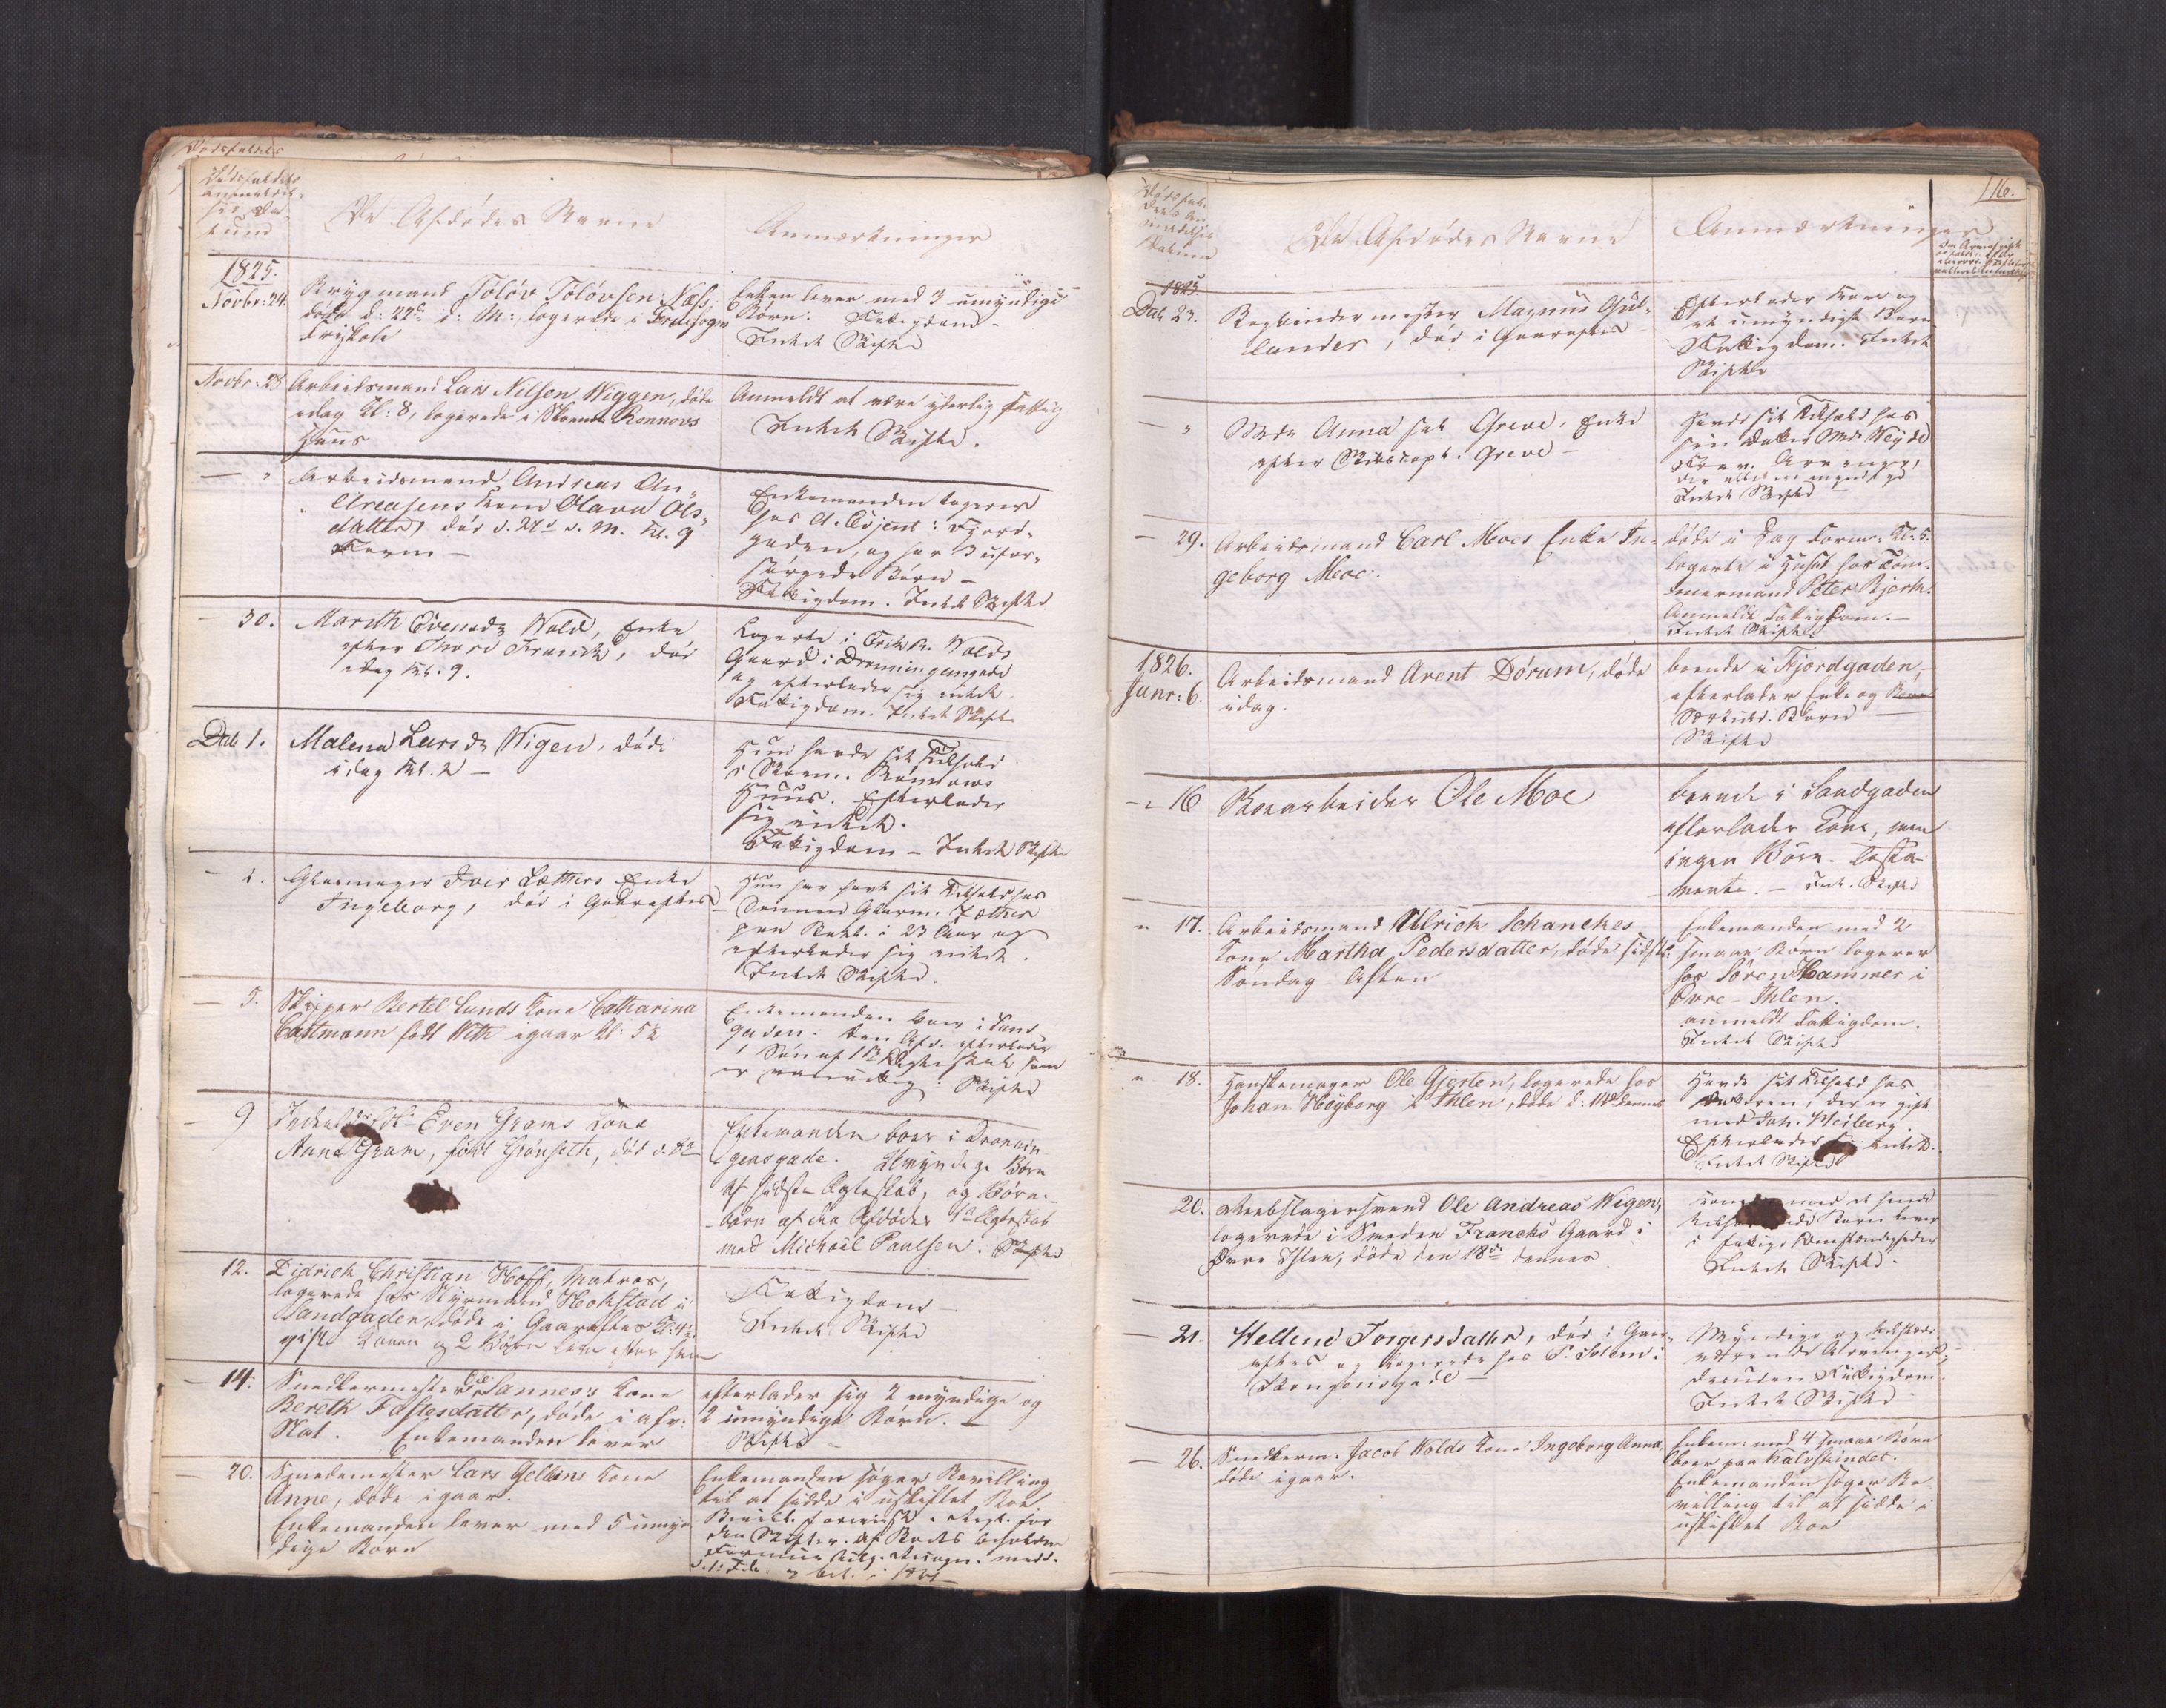 Dødsfaldets
Anmeldel-
ses Da-
tum
De Afdødes Navne
Anmærkninger
1825.
Novbr: 24.
Brygmand Toløv Toløvsen Næss,
døde d: 22de d: M:, logerede i Fruesogns
Friskole
Enken lever med 3 umyndige
Børn. Fattigdom
Intet Skifte
Novbr: 28
Arbeidsmand Lars Nilsen Wiggen, døde
idag Kl: 8, logerede i Skoem. Rønnovs
Huus
Anmeldt at være yderlig fattig
Intet Skifte.
Arbeidsmand Andreas An-
dreasens Kone Olava Ols-
datter, død d. 27de d. M. Kl. 9
Form
Enkemanden logerer
hos A. Esjent: Fjord-
gaden, og har 3 ufor-
sørgede Børn
Fattigdom. Intet Skifte
30.
Marith Evensdr Wold, Enke
efter Thore Franck, død
idag Kl. 9.
Logerte i Erik R. Wolds
Gaard i Dronningensgade
og efterlader sig intet.
Fattigdom. Intet Skifte
Decb 1.
Malena Larsdr Wigen, døde
idag Kl. 2
Hun havde sit Tilhold
i Skoem. Rønnows
Huus. Efterlader
sig intet.
Fattigdom - Intet Skifte
2.
Glarmager Iver Lætters Enke
Ingeborg, død i Gaaraftes
Hun har havt sit Tilhold hos
Sønnen Glarm. Lætter
paa Bakl. i 23 Aar og
efterlader sig intet.
Intet Skifte.
5.
Skipper Bertel Lunds Kone Catharina
Castmann født With igaar kl: 5½
Enkemanden boer i Sand
gaden. Den Afd. efterlader
1 Søn af 1ste Ægteskab som
er vanvittig. Skifte
9
Even Grams Kone
Anna Gram, født Grønseth, død d. 8de
Enkemanden boer i Dronnin
gensgade. Umyndige Børn
af sidste Ægteskab, og Børne-
børn af den Afdødes 1ste Ægteskab
med Michaël Paulsen. Skifte
12.
Didrich Christian Hoff, Matros,
logerede hos Styrmand Hokstad i
Sandgaden, døde i Gaaraftes Kl: 4½
gift Konen og 2 Børn leve efter ham
Fattigdom
Intet Skifte
14.
Snedkermester Ole Sannes's Kone
Bereth Fastesdatter, døde i afv:
Nat. Enkemanden lever
efterlader sig 2 myndige og
2 umyndige Børn. -
Skifte
20.
Smedemester Lars Gellins Kone
Anne, døde igaar.
Enkemanden lever med 5 umyn
dige Børn
Enkemanden søger Bevilling
til at sidde i uskiftet Boe.
116.
Dødsfal-
dets An-
meldelses
Datum
De Afdødes Navne
Anmærkninger
1825
Decb 27.
Bogbindermester Magnus Gul-
lander, død i Gaaraftes
Efterlader Kone og
et umyndigt Barn
Fattigdom. Intet
Skifte
Mdm Anna sal Greve, Enke
efter Skibscapt. Greve
Havde sit Tilhold hos
sin Datter Md. Weyde
Intet Skifte
29.
Arbeidsmand Carl Moes Enke In-
geborg Moe.
døde i Dag Form: Kl: 5.
logerte i Huset hos Tøm-
mermand Peter Bjerk:
Anmeldt Fattigdom. -
Intet Skifte.
1826.
Janr: 6.
Arbeidsmand Arent Dørum, døde
idag.
boende i Fjordgaden,
efterlader Enke og
Særkuld. Børn
Skifte
16
Skoearbeider Ole Moe
boende i Sandgaden
efterlader Kone, men
ingen Børn. Testa-
mente. - Int. Skifte
17.
Arbeidsmand Ulrich Schanches
Kone Martha Pedersdatter, døde sidstl:
Søndag Aften
Enkemanden med 2
smaae Børn logerer
hos Søren Hammer i
Øvre-Ihlen.
anmeldt Fattigdom.
Intet Skifte
18.
Handskemager Ole Gjersten, logerede hos
Johan Heyborg i Ihlen, døde d: 14de dennes
Havde sit Tilhold hos
Datteren, der er gift
med Joh. Heiberg.
Efterlader sig intet.
Intet Skifte
20.
Reebslagersvend Ole Andreas Wigen,
logerede i Smeden Francks Gaard i
Øvre Ihlen, døde den 18de dennes
Børn lever
i fattige Omstændigheder
Intet Skifte.
21.
Hellene Torgersdatter, død i Gaar-
aftes og logerede hos P. Solem i
Kongensgade
Myndige og
værende Arvinger,
desuden Fattigdom.
Intet Skifte
26.
Snedkerm. Jacob Wolds Kone Ingeborg Anna,
døde igaar.
Enkem: med 4 smaae Børn
boer paa Kalvskindet.
Enkemanden søger Be-
villing til at sidde i
uskiftet Boe